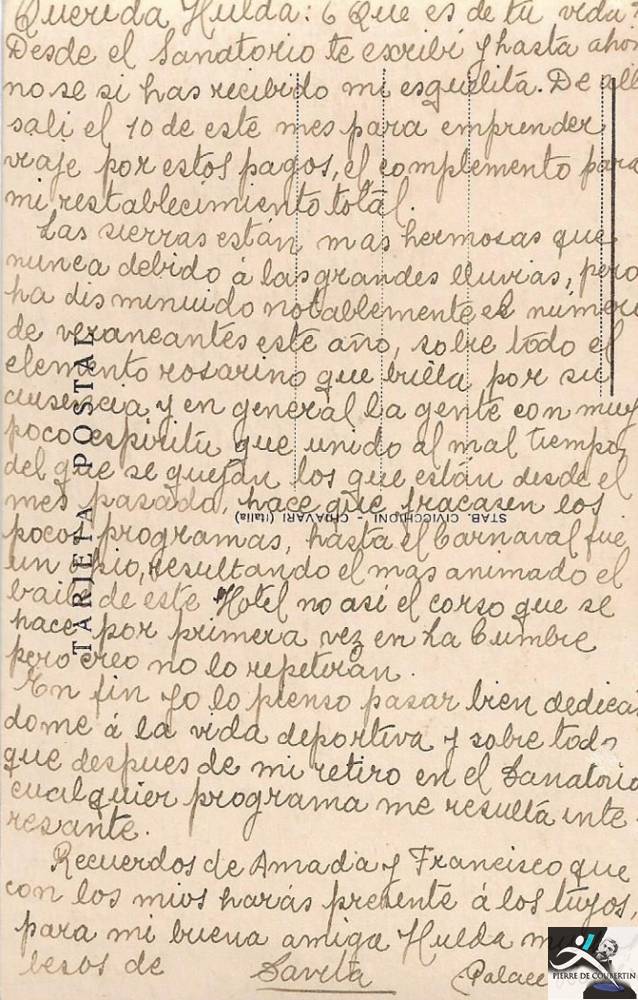 Querida Hulda: ¿Que es de tu vida?
Desde el Sanatorio te escribí y hasta ahor
no se si has recibido mi esquelita. De all
salí el 10 de este mes para emprender
viaje por estos pagos, el complemento para
mi restablecimiento total.
Las sierras están mas hermosas que
nunca debido á las grandes lluvias, pero
ha disminuido notablemente el número
de veraneantes este año, sobre todo el
elemento rosarino que brilla por su
ausencia y en general la gente con muy
poco espiritu que unido al mal tiempo
del que se quejan los que están desde el
mes pasado, hace que fracasen los
pocos programas, hasta el Carnaval fue
un resultando el mas animado el
baile de este Hotel no asi el corso que se
hace por primera vez en La Cumbre
pero creo no lo repetirán.
En fin yo lo pienso pasar bien dedican
dome á la vida deportiva y sobre todo
que despues de mi retiro en el Sanatorio
cualquier programa me resulta inte-
resante.
Recuerdos de Amada y Francisco que
con los mios harás presente á los tuyos,
para mi buena amiga Hulda
besos de
Savita
Palace
TARJETA POSTAL
STAB. CIVICCHIONI - CHIAVARI (Italia)
PIERRE DE COUBERTIN